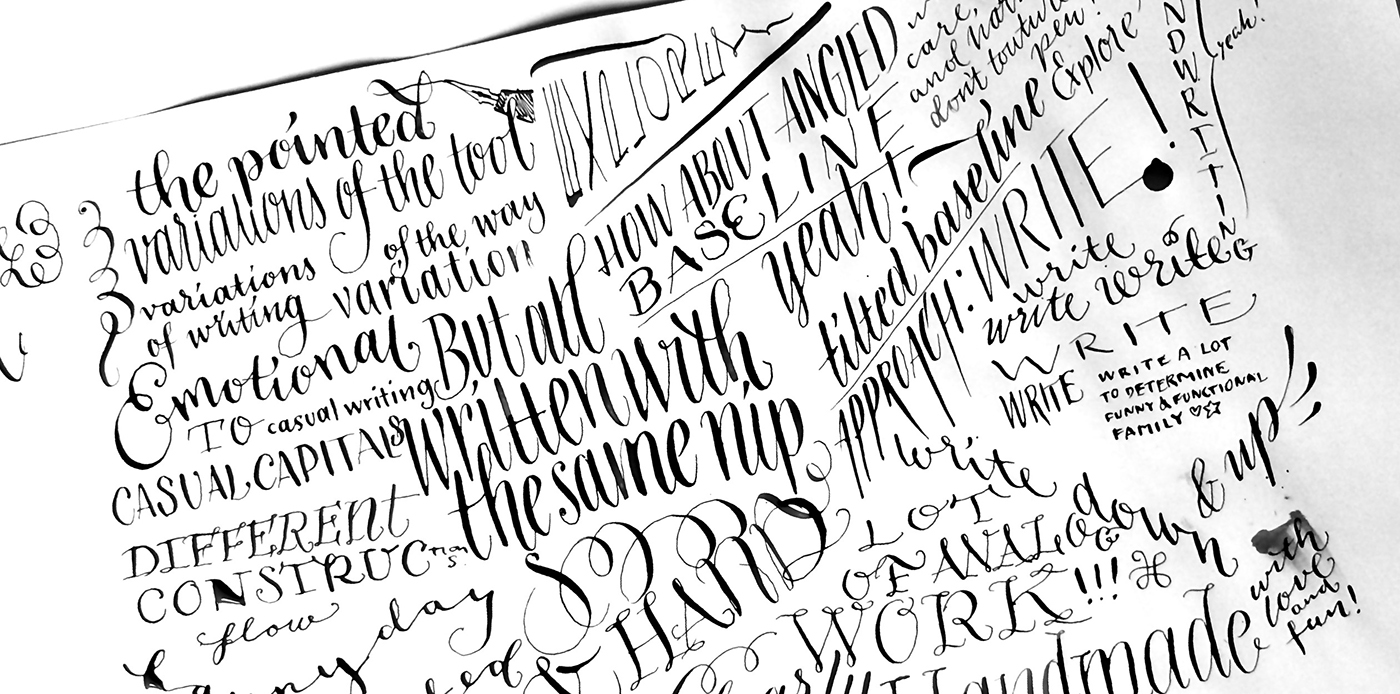 the pointed
variations of the tool
variations
of the way
of writing
variation
Emotional
TO casual writing
CASUAL CAPITALS
DIFFERENT
CONSTRUCTIONS
flow
day
But all
written with
the same nip
HARD
HOW ABOUT ANGLED
BASELINE
yeah!
tilted baseline
APPROACH: WRITE!
care,
and
don't
pen!
Explore
NDWRITING
yeah!
write
write write
WRITE
WRITE
WRITE A LOT
TO DETERMINE
FUNNY & FUNCTIONAL
FAMILY ♡☆
write
LOT
OF ANALOG
WORK!!! ⌘
down & up
with
love
and
fun!
Handmade